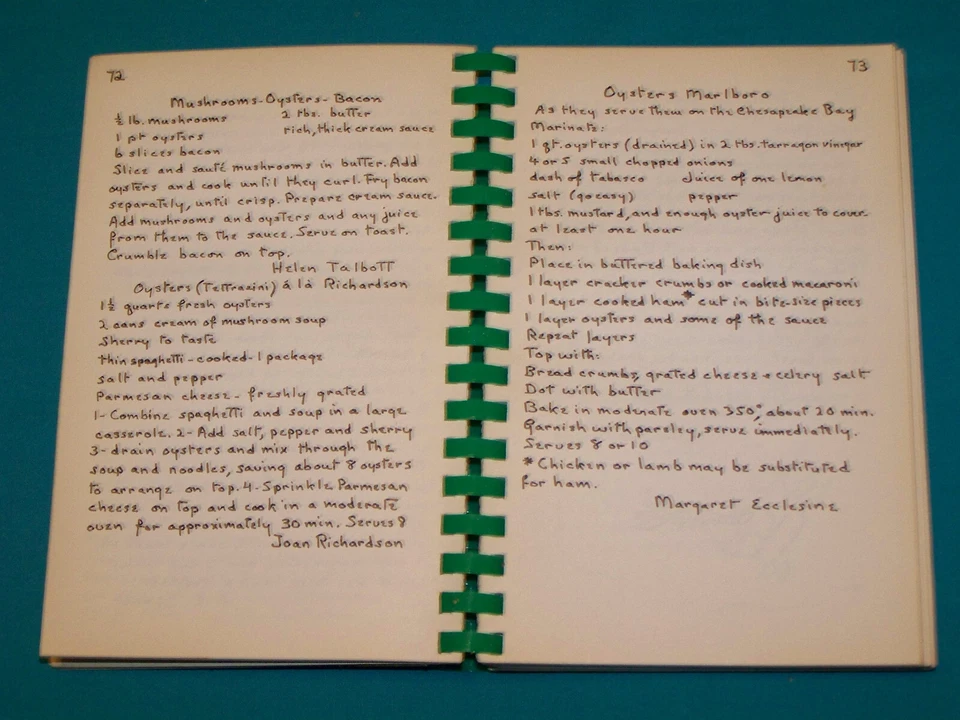 72
Mushrooms-Oysters-Bacon
½ lb. mushrooms 2 tbs. butter
1 pt oysters rich, thick cream sauce
6 slices bacon
Slice and sauté mushrooms in butter. Add
oysters and cook until they curl. Fry bacon
separately, until crisp. Prepare cream sauce.
Add mushrooms and oysters and any juice
from them to the sauce. Serve on toast.
Crumble bacon on top.
Helen Talbott
Oysters (Tettrazini) á la Richardson
1½ quarts fresh oysters
2 cans cream of mushroom soup
Sherry to taste
thin spaghetti - cooked - 1 package
salt and pepper
Parmesan cheese - freshly grated
1- Combine spaghetti and soup in a large
casserole. 2- Add salt, pepper and sherry
3- drain oysters and mix through the
soup and noodles, saving about 8 oysters
to arrange on top. 4- Sprinkle Parmesan
cheese on top and cook in a moderate
oven for approximately 30 min. Serves 8
Joan Richardson
73
Oysters Marlboro
As they serve them on the Chesapeake Bay
Marinate:
1 qt. oysters (drained) in 2 tbs. tarragon vinegar
4 or 5 small chopped onions
dash of tabasco juice of one lemon
salt (go easy) pepper
1 tbs. mustard, and enough oyster juice to cover
at least one hour
Then:
Place in buttered baking dish
1 layer cracker crumbs or cooked macaroni
1 layer cooked ham* cut in bite-size pieces
1 layer oysters and some of the sauce
Repeat layers
Top with:
Bread crumbs, grated cheese + celery salt
Dot with butter
Bake in moderate oven 350°, about 20 min.
Garnish with parsley, serve immediately.
Serves 8 or 10
*Chicken or lamb may be substituted
for ham.
Margaret Ecclesine